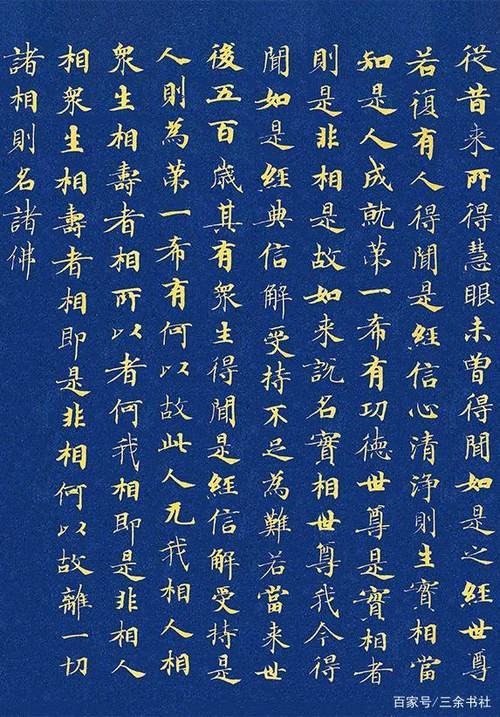 從昔来所得慧眼未曽得聞如是之経世尊
若復有人得聞是経信心清浄則生實相當
知是人成就苐一希有功徳世尊是實相者
則是非相是故如来説名實相世尊我今得
聞如是経典信解受持不足為難若當来世
後五百歳其有衆生得聞是経信解受持是
人則為苐一希有何以故此人无我相人相
衆生相壽者相所以者何我相即是非相人
相衆生相壽者相即是非相何以故離一切
諸相則名諸佛
百家号/三余书社